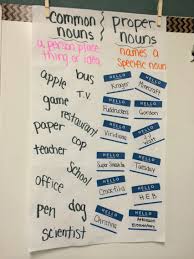 common nouns
proper nouns
a person place thing or idea
names a specific noun
apple bus
T.V
game
restaurant
paper cop
teacher
School
office
pen dog
scientist
HELLO Kroger
HELLO Minecraft
HELLO
HELLO Gordon
HELLO
HELLO Viridiana
HELLO
HELLO Tuesday
HELLO
HELLO H.E.B
HELLO Christina
HELLO Elementary